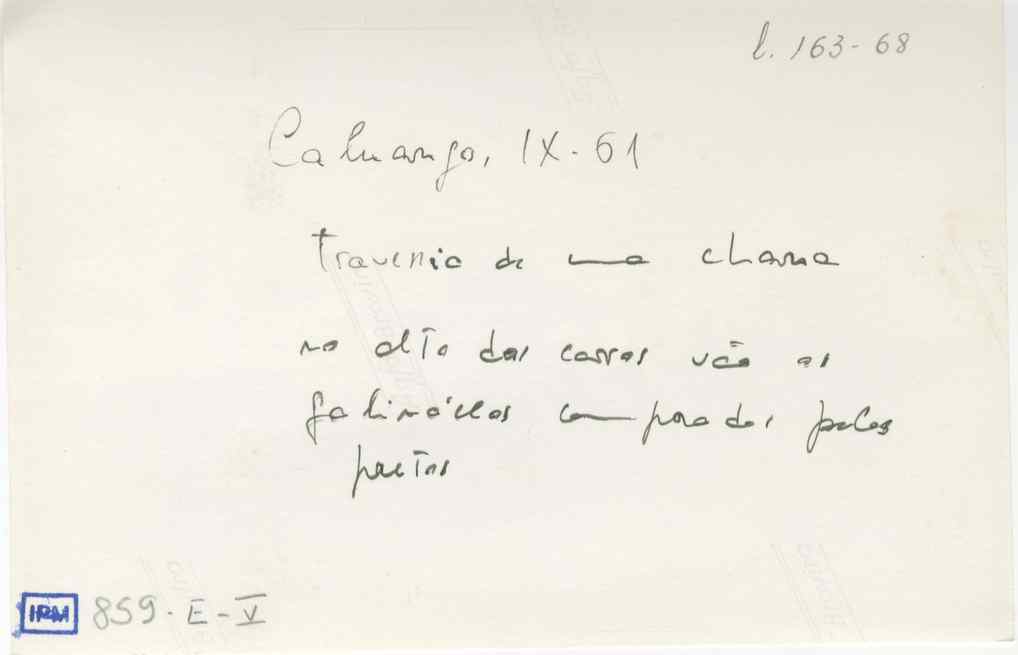 l. 163-68
Caluango, IX-61
travessia de uma chana
no alto dos carros vão as
galináceas compradas pelos
pretos
IRM 859-E-V